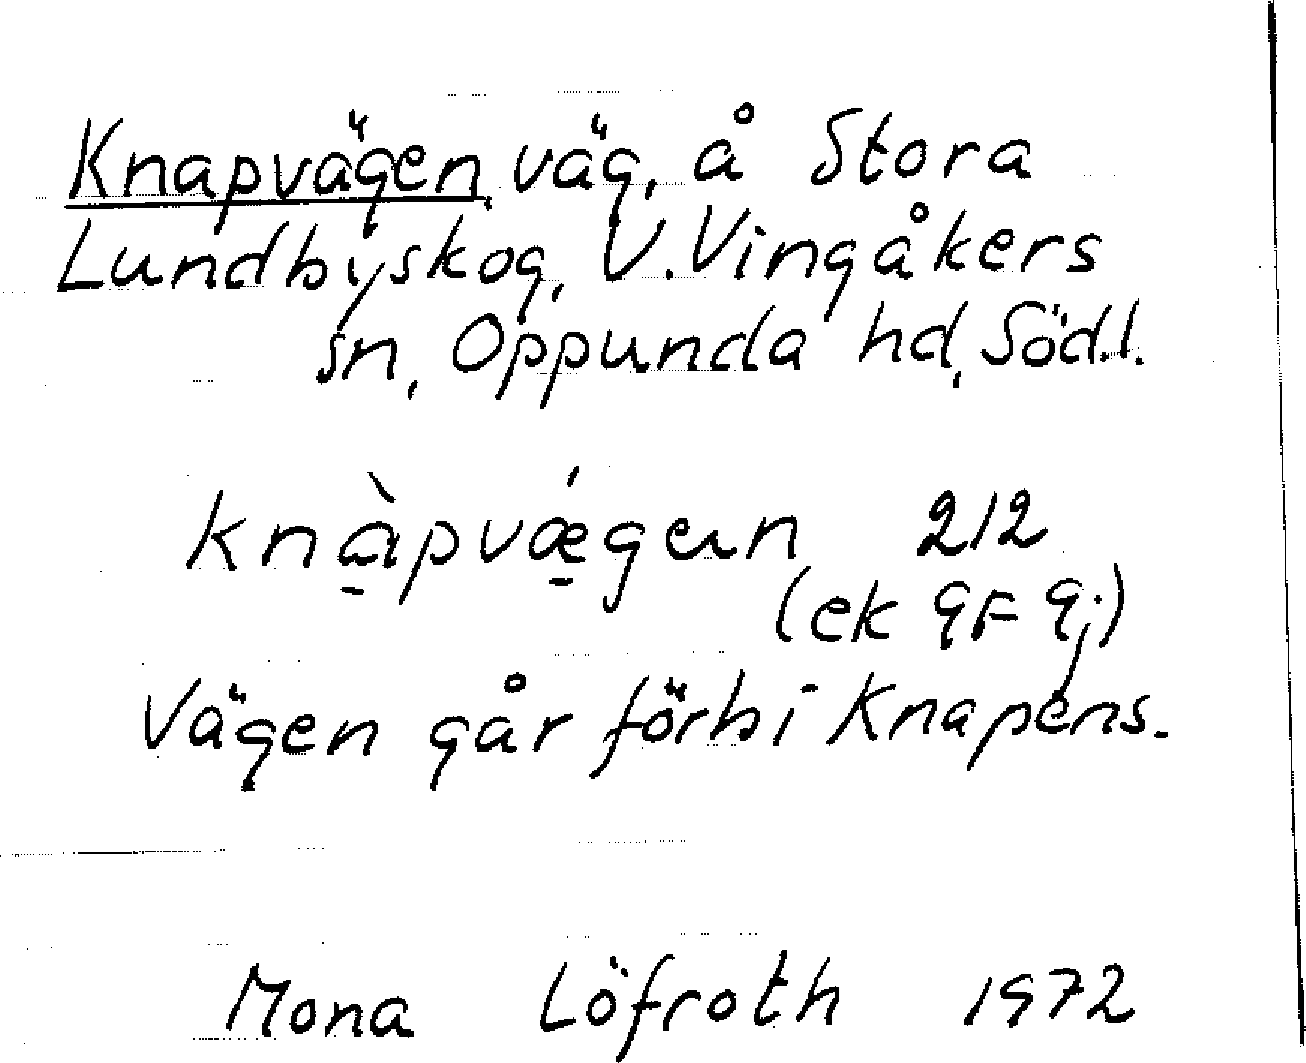 Knapvägen, väg, å Stora
Lundbyskog, V. Vingåkers
sn, Oppunda hd, Söd.l.
knà̱pvǽ̱gen 212
(ek 9F 9j)
Vägen går förbi Knapens.
Mona Löfroth 1972